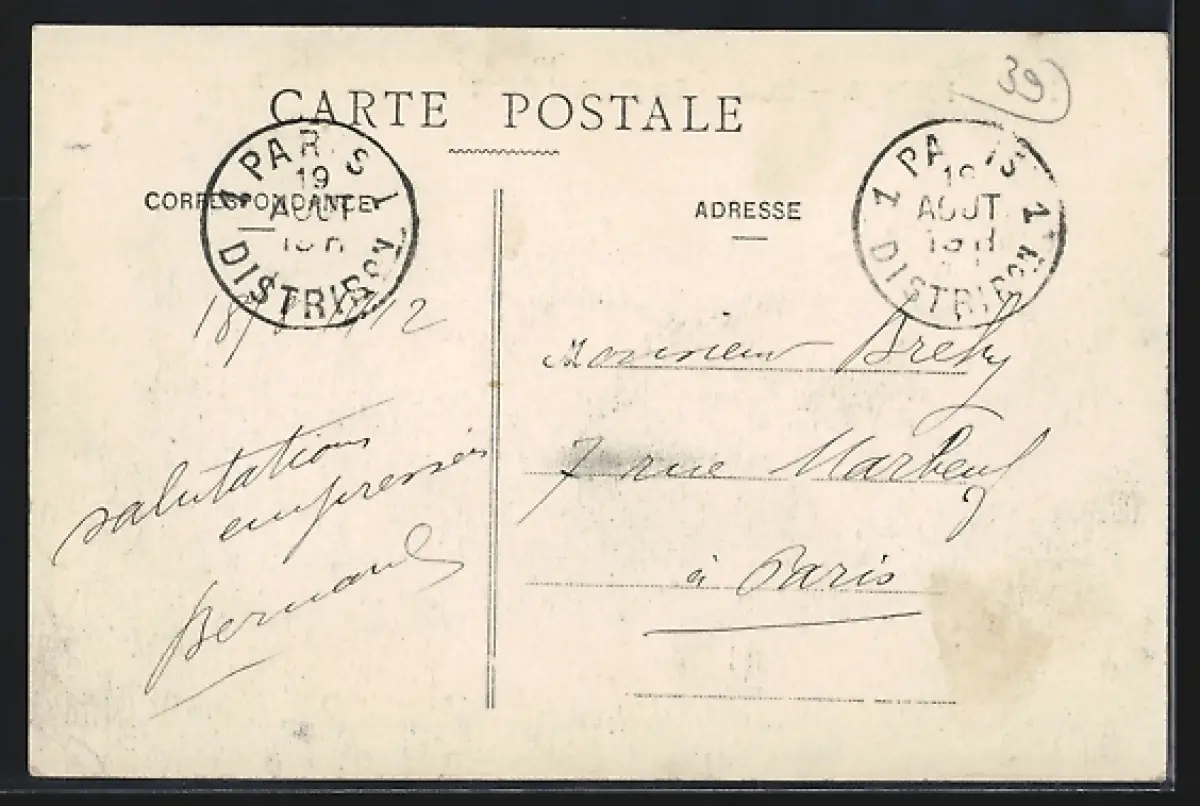 39
CARTE POSTALE
PARIS 1
19
AOUT
DISTRIBON
CORRESPONDANCE
1 PARIS 1
AOUT
DISTRIBON
ADRESSE
18/ 12
Monsieur
7 rue Marbeuf
à Paris
salutations
empressées
Bernard